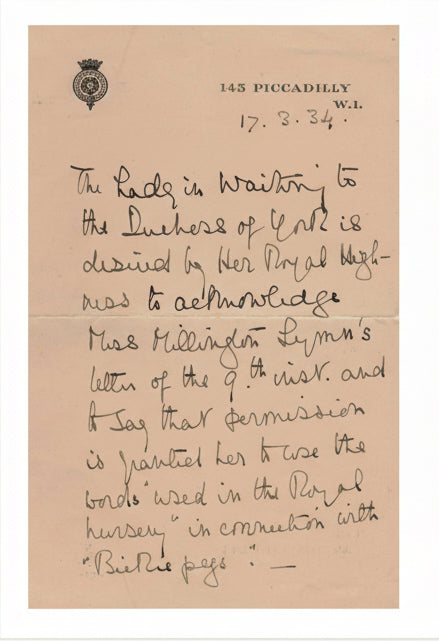 145 PICCADILLY
W.1.
17. 3. 34.
The Lady in Waiting to
the Duchess of York is
desired by Her Royal High-
ness to acknowledge
Miss Millington Lynn's
letter of the 9.th inst. and
to say that permission
is granted her to use the
words "used in the Royal
nursery" in connection with
"Bickie pegs". —